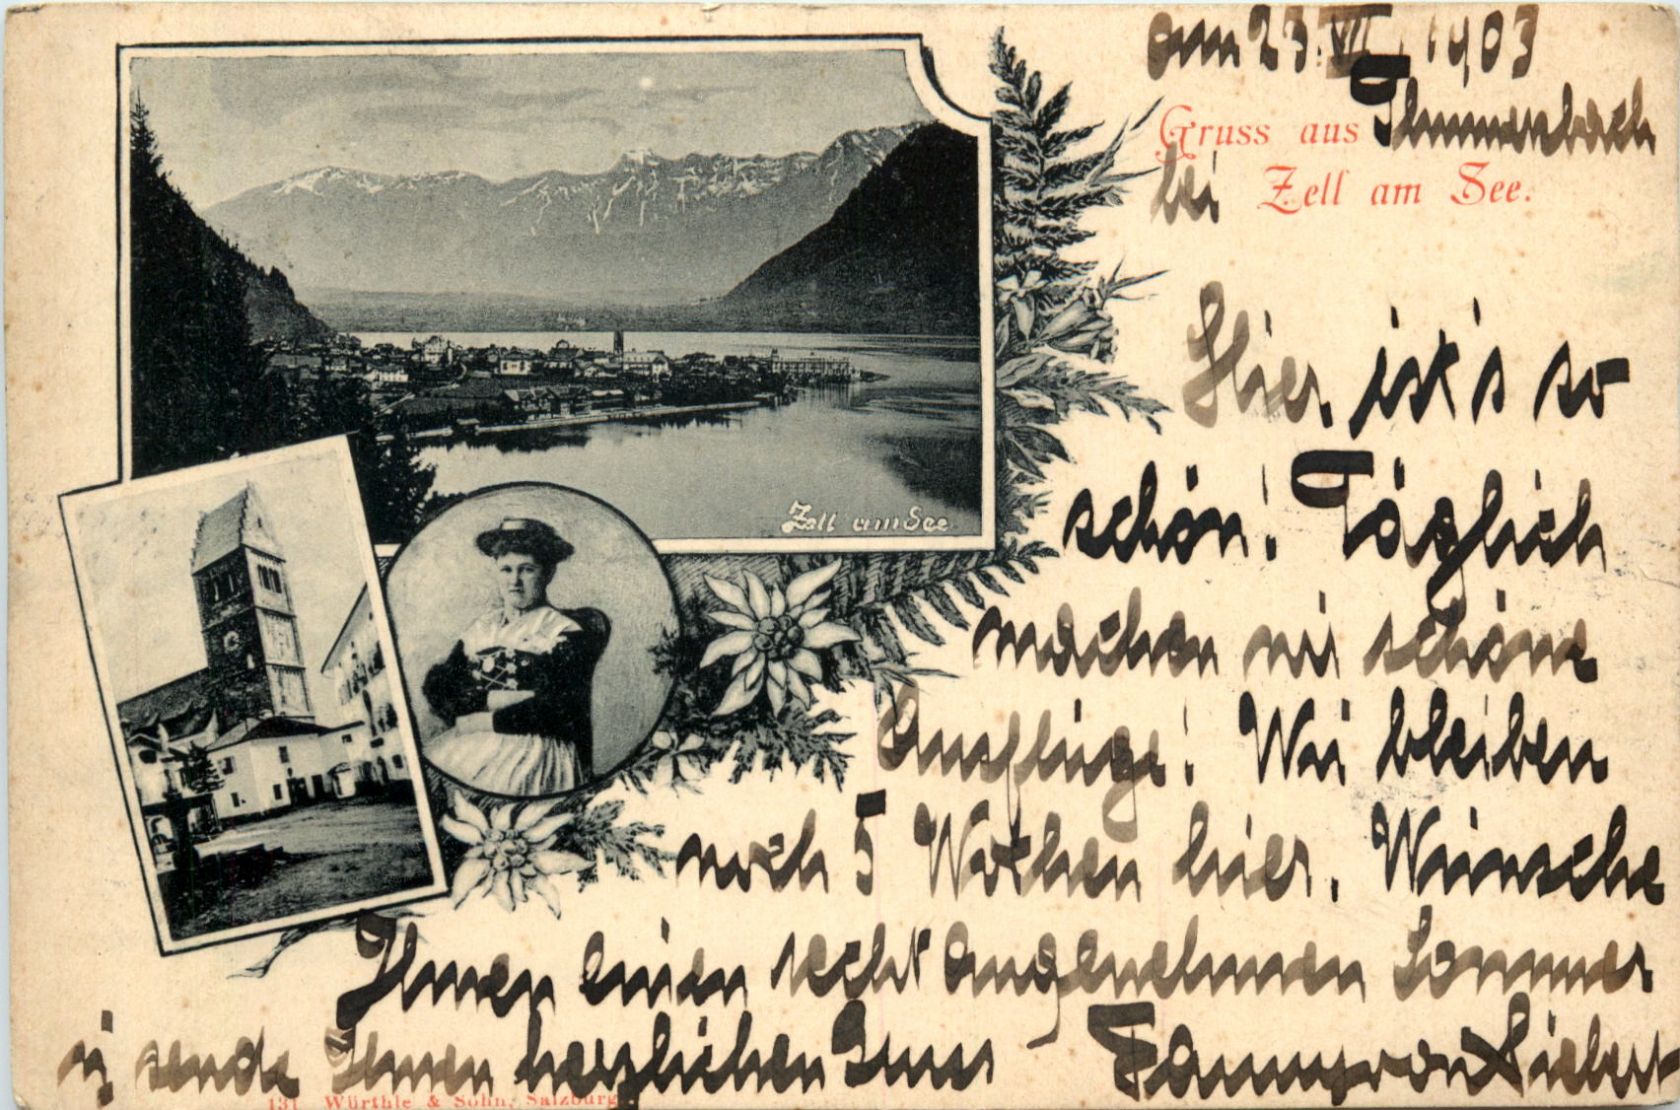 am 23. VII. 1903
Gruss aus Thumersbach
bei Zell am See.
Hier ist's so
schön! Täglich
machen wir schöne
Ausflüge! Wir bleiben
noch 5 Wochen hier. Wünsche
Ihnen einen recht angenehmen Sommer
u. sende Ihnen herzlichen Gruss Fanny von Liebert
Zell am See
131 Würthle & Sohn, Salzburg.